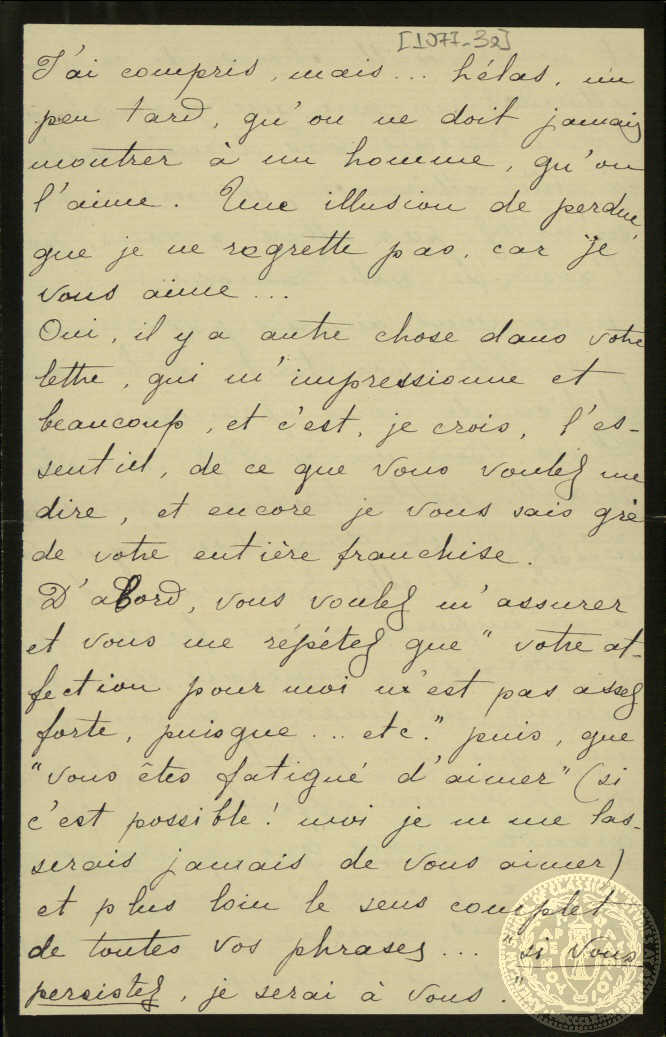 [1077-32]
J'ai compris, mais... hélas, un
peu tard, qu'on ne doit jamais
montrer à un homme, qu'on
l'aime. Une illusion de perdue
que je ne regrette pas, car je
vous aime...
Oui, il y a autre chose dans votre
lettre, qui m'impressionne et
beaucoup, et c'est, je crois, l'es-
sentiel, de ce que vous voulez me
dire, et encore je vous sais gré
de votre entière franchise.
D'abord, vous voulez m'assurer
et vous me répétez que "votre af-
fection pour moi n'est pas assez
forte, puisque... etc." puis, que
"vous êtes fatigué d'aimer" (si
c'est possible! moi je ne me las-
serais jamais de vous aimer)
et plus loin le sens complet
de toutes vos phrases... "si vous
persistez, je serai à vous."